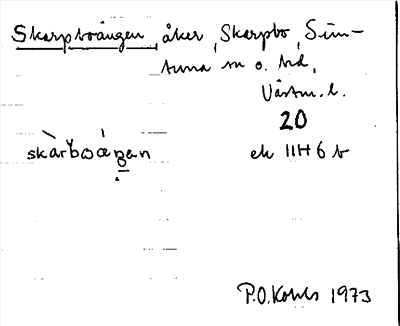 Skarpboängen, åker, Skarpbo, Sim-
tuna sn o. hd,
Västm. l.
20
skàrboǽŋen ek 11H6b
P.O.Kohls 1973